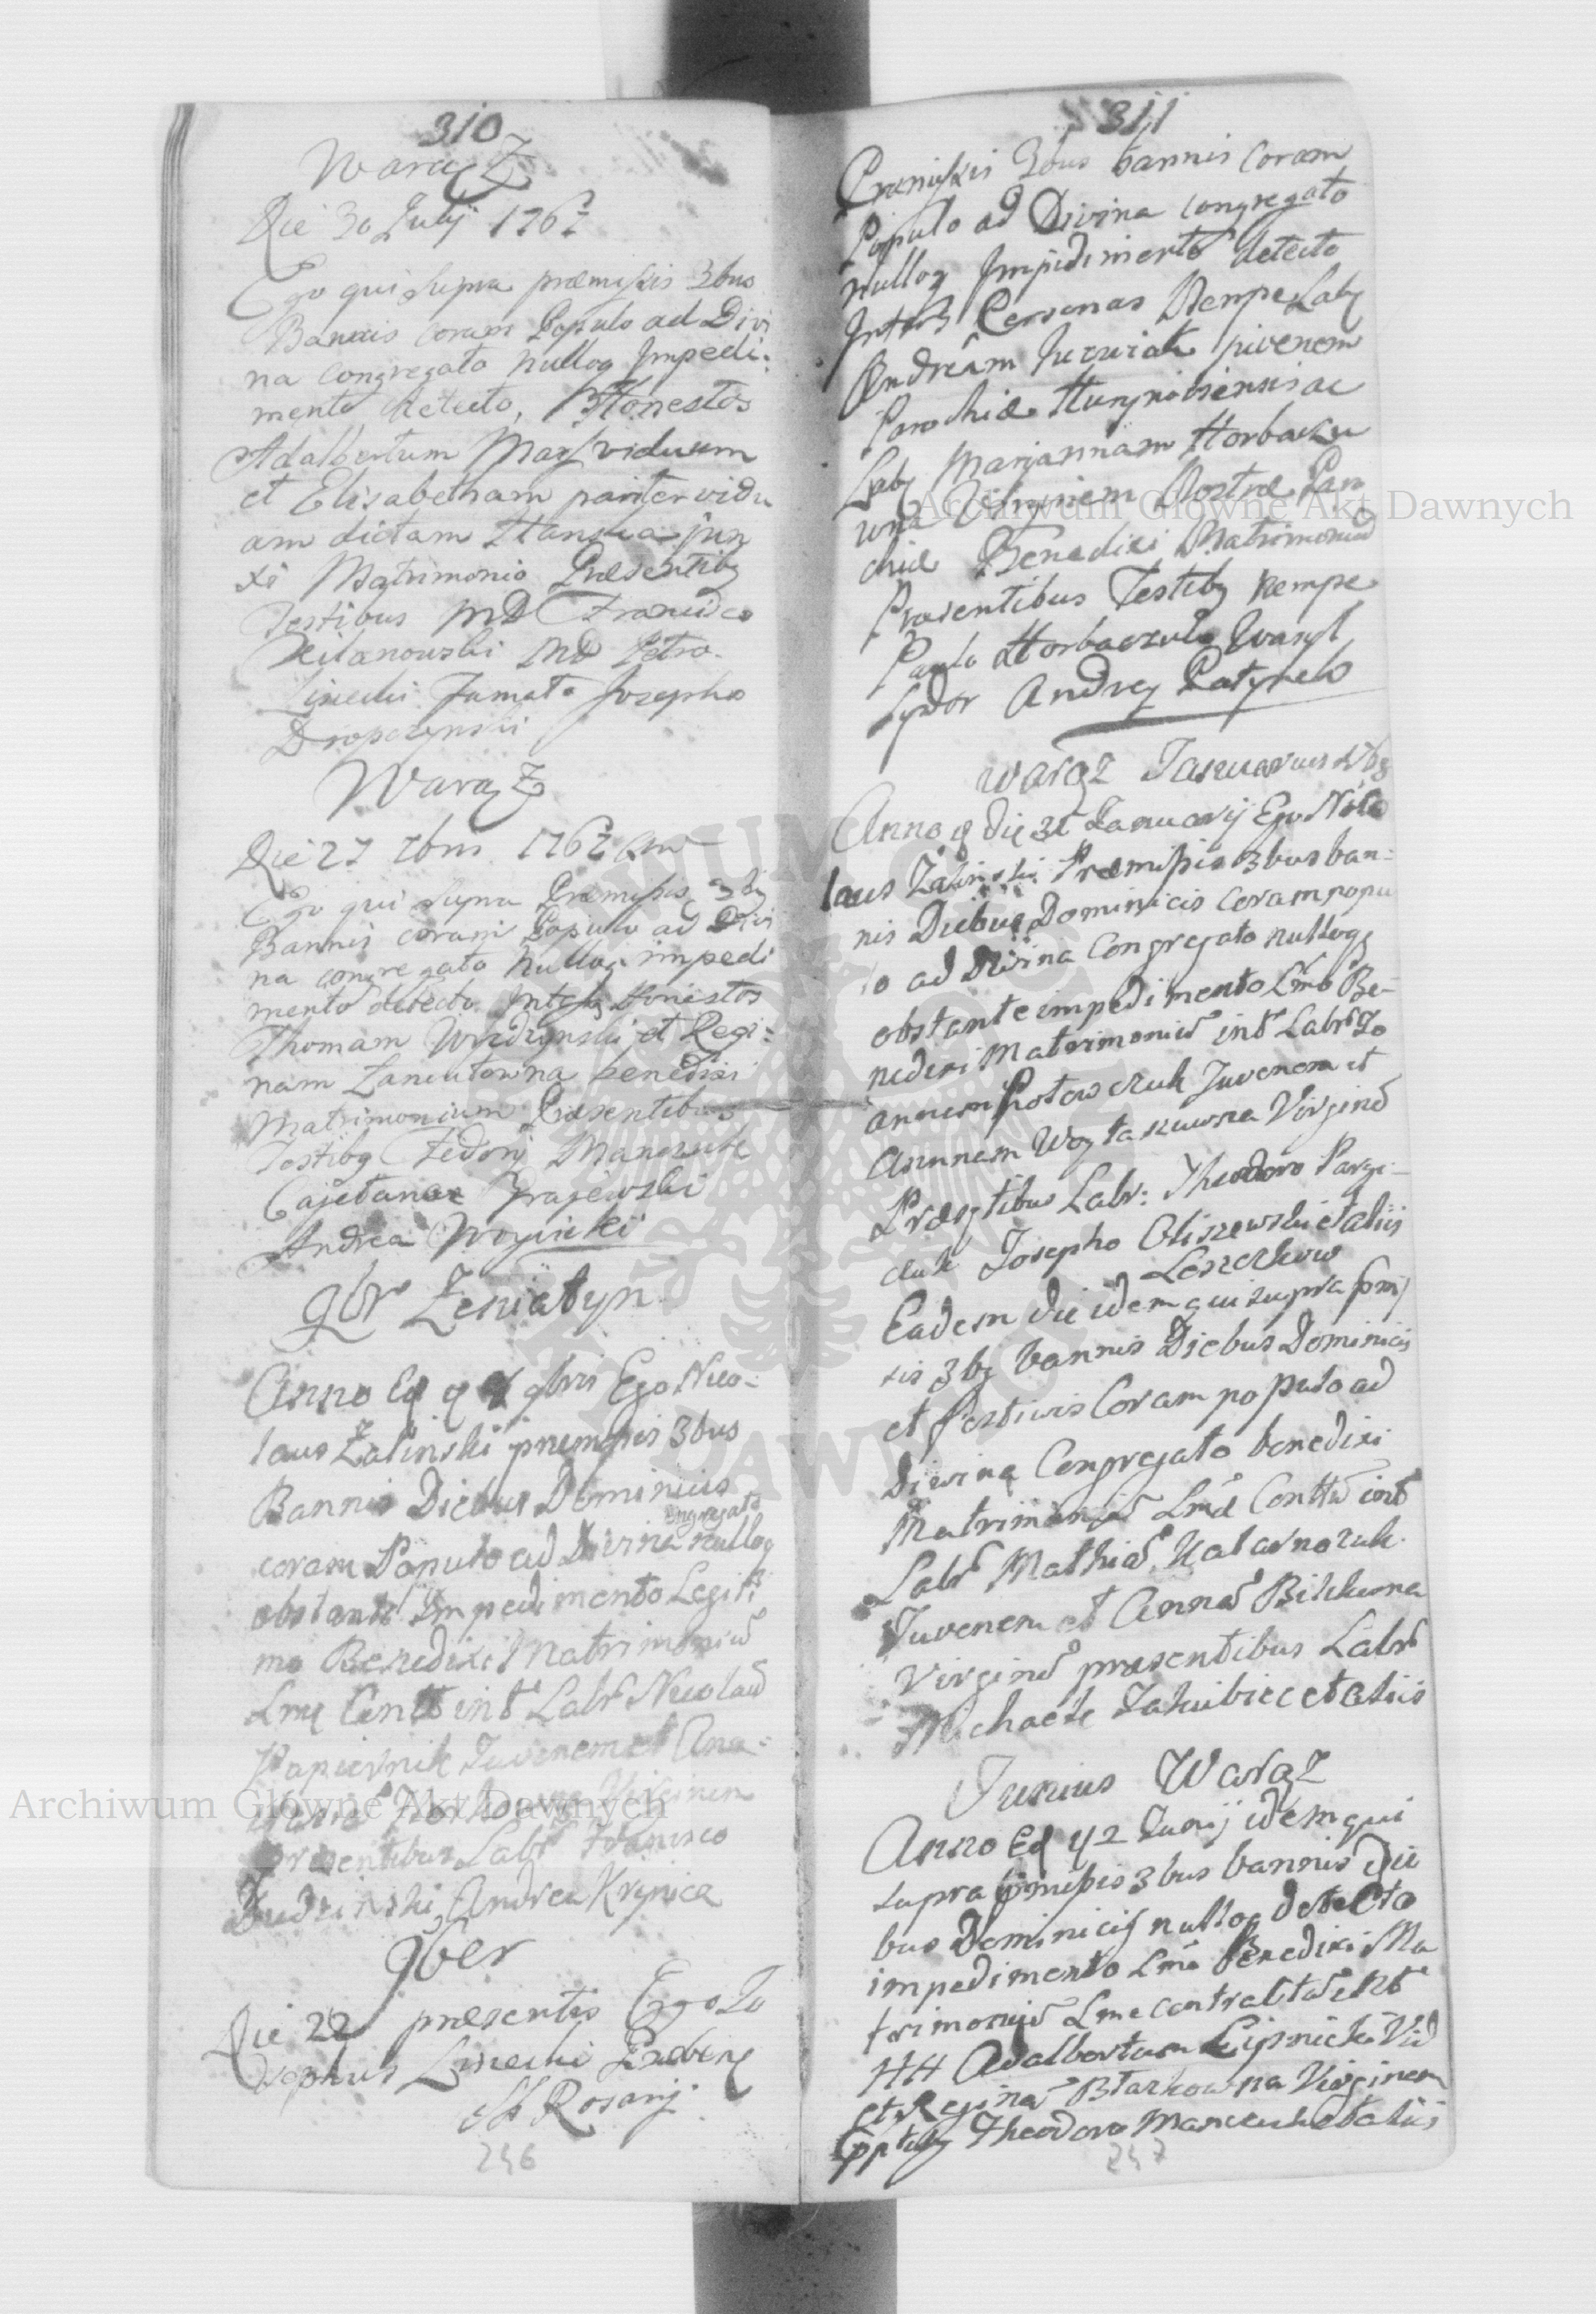 310
Warąż
Die 30 Julij 1767
Ego qui supra præmissis 3bus
Bannis coram Populo ad Divi
na congregato nulloq Impedi:
mento detecto, Honestos
Adalbertum viduum
et Elisabetham pariter vidu
am dictam jun
xi Matrimonio Præsentibq
Testibus MD Francisco
Kilanowski MD Petro
Linecki Famato Josepho
Dropczynski
Warąż
Die 27 7bris 1767
Ego qui supra Præmissis 3bq
Bannis coram Populo ad Divi
na congregato Nulloq impedi
mento detecto Honestos
Thomam et Regi:
nam benedixi
Matrimonium Præsentibus
Testibq Fedory Manczuk
Cajetano Zrajewski
Andrea Woynicki
9br Żeniatyn
Anno 9bris Ego Nico-
laus Żalinski præmissis 3bus
Bannis Diebus Dominicis
congregato
coram Populo ad Divina nulloq
obstante Impedimento Legiti
mo Benedixi Matrimoniū
Lme int Labr Nicolaū
Papiernik Juvenem et Ana-
Virginem
præsentibus Labr Francisco
Budzinski Andrea Krynica
9ber
Die 22 præsentis Ego Jo
sephus Linecki Præben
SS Rosarij
246
311
Præmissis 3bus bannis coram
Populo ad Divina congregato
nulloq Impedimento detecto
Personas Nempe Labq
Andream juvenem
Parochiæ ac
Labq Mariannam Horbaczu
wna Virginem Nostræ Paro
chiæ Benedixi Matrimoniū
Præsentibus Testibq Nempe
Paulo Horbaczuk Iwan
Sydor Andrey Patynko
Warąż Januarius
Anno q die 31 Januarij Ego Nico
laus Żalinski Præmissis 3bus ban-
nis Diebus Dominicis coram popu
lo ad Divina Congregato nulloq
obstante impedimento Lmo Be-
nedixi Matrimoniū int Labr Jo
annem Juvenem et
Annam Virginē
Labr: Theodoro
Josepho Oliszewski et aliis
Leszczkow
Eadem die idem qui supra
sis 3bq bannis Diebus Dominicis
et festivis Coram populo ad
Divina Congregato benedixi
Matrimoniū Lme int
Labr Mathiā
Juvenem et Annā Bilkuwna
Virginē præsentibus Labr
Michaele Jakubiec et aliis
Junius Warąż
Anno 2 Junij idem qui
supra præmissis 3bus bannis Die
bus Dominicis nulloq detecto
impedimento Lmo Benedixi Ma
trimoniū Lme contractū int
HH Adalbertum Lipnicki Vid
et Reginā Virginem
Theodoro Manczuk et aliis
247
Archiwum Główne Akt Dawnych
Archiwum Główne Akt Dawnych